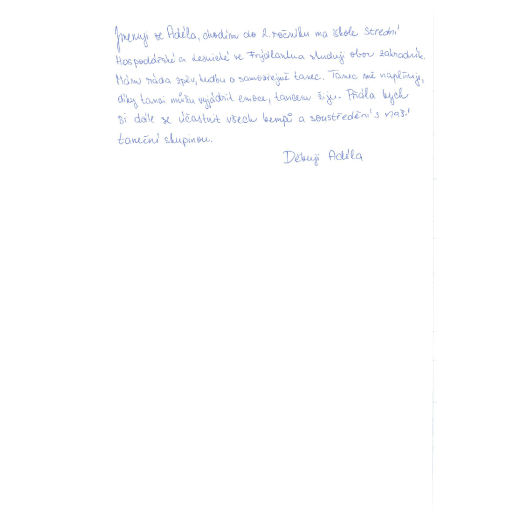 Jmenuji se Adéla, chodím do 2. ročníku na škole Střední
Hospodářské a Lesnické ve Frýdlantu a studuji obor zahradník.
Mám ráda zpěv, hudbu a samozřejmě tanec. Tanec mě naplňuje,
díky tanci můžu vyjádřit emoce, tancem žiju. Přála bych
si dále se účastnit všech kempů a soustředění s naší
taneční skupinou.
Děkuji Adéla